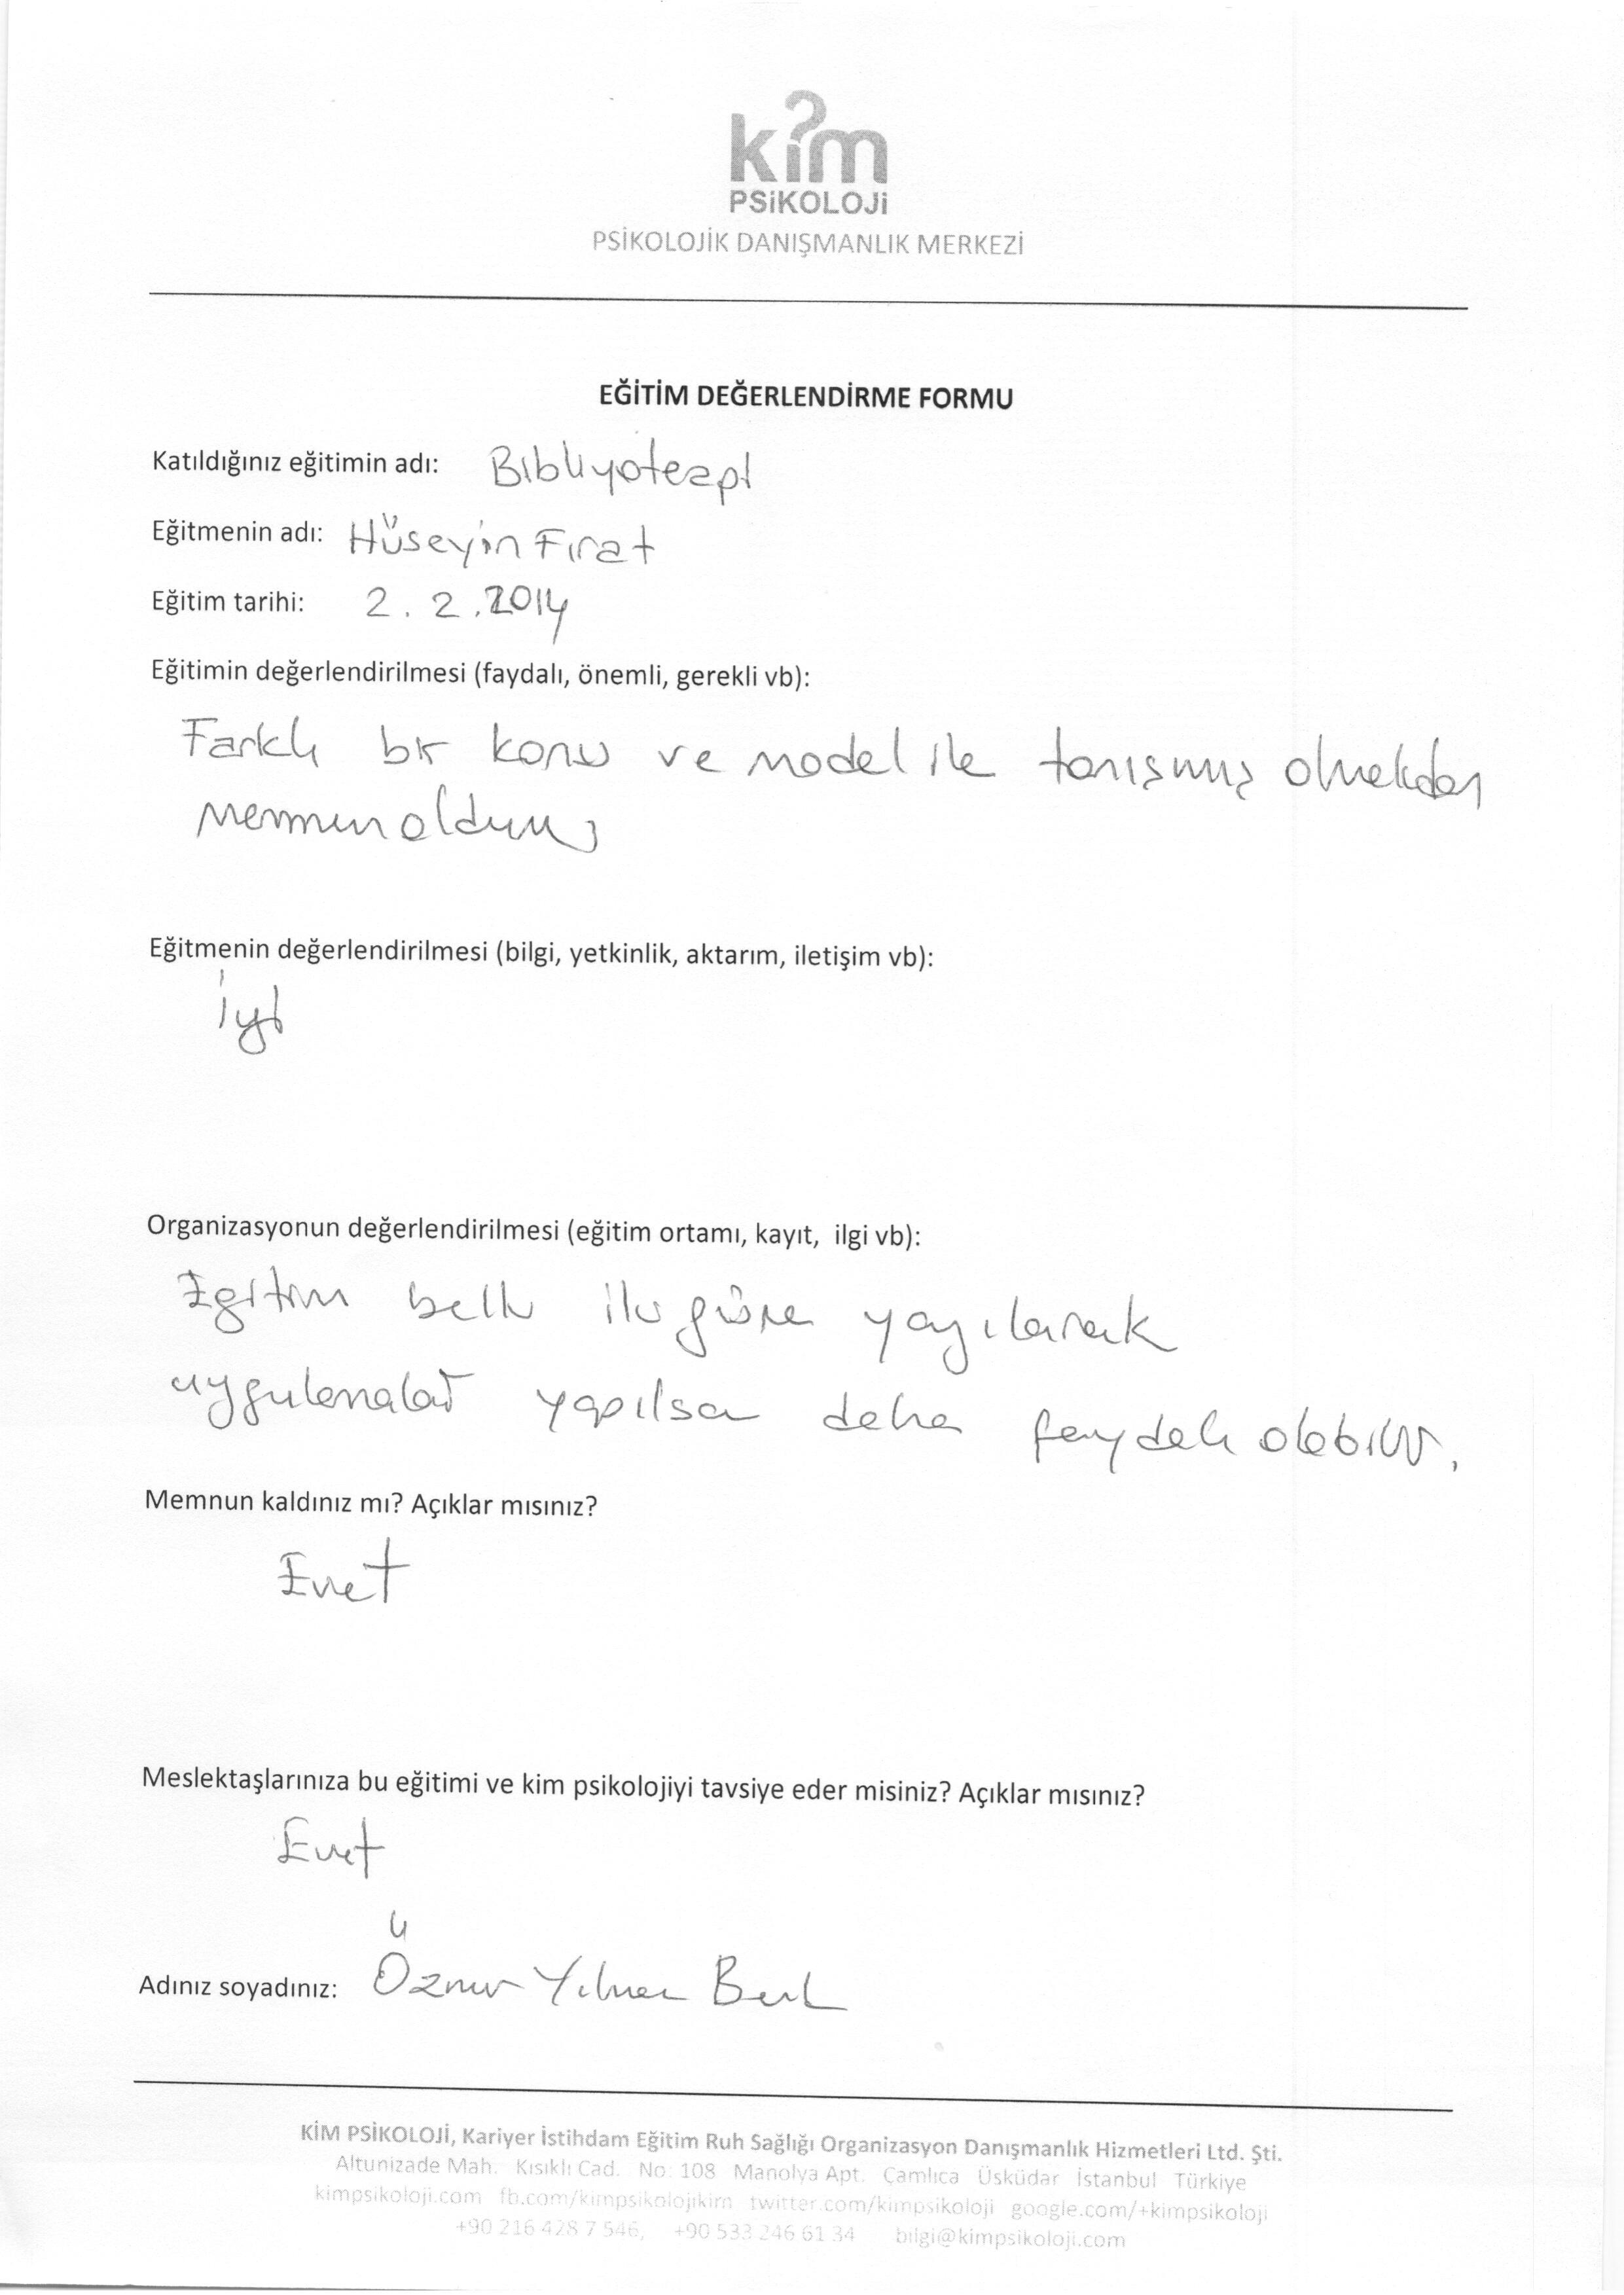 kim
PSiKOLOJi
PSİKOLOJİK DANIŞMANLIK MERKEZİ
EĞİTİM DEĞERLENDİRME FORMU
Katıldığınız eğitimin adı: Bibliyoterapi
Eğitmenin adı: Hüseyin Fırat
Eğitim tarihi: 2.2.2014
Eğitimin değerlendirilmesi (faydalı, önemli, gerekli vb):
Farklı bir konu ve model ile tanışmış olmakdan
memnun oldum
Eğitmenin değerlendirilmesi (bilgi, yetkinlik, aktarım, iletişim vb):
İyi
Organizasyonun değerlendirilmesi (eğitim ortamı, kayıt, ilgi vb):
Eğitim belki iki güne yayılarak
uygulamalar yapılsa daha faydalı olabilir.
Memnun kaldınız mı? Açıklar mısınız?
Evet
Meslektaşlarınıza bu eğitimi ve kim psikolojiyi tavsiye eder misiniz? Açıklar mısınız?
Evet
Adınız soyadınız: Öznur Yılmaz
KİM PSİKOLOJİ, Kariyer İstihdam Eğitim Ruh Sağlığı Organizasyon Danışmanlık Hizmetleri Ltd. Şti.
Altunizade Mah. Kısıklı Cad. No: 108 Manolya Apt. Çamlıca Üsküdar İstanbul Türkiye
kimpsikoloji.com fb.com/kimpsikolojikim twitter.com/kimpsikoloji google.com/+kimpsikoloji
+90 216 428 7 546, +90 533 246 61 34 bilgi@kimpsikoloji.com